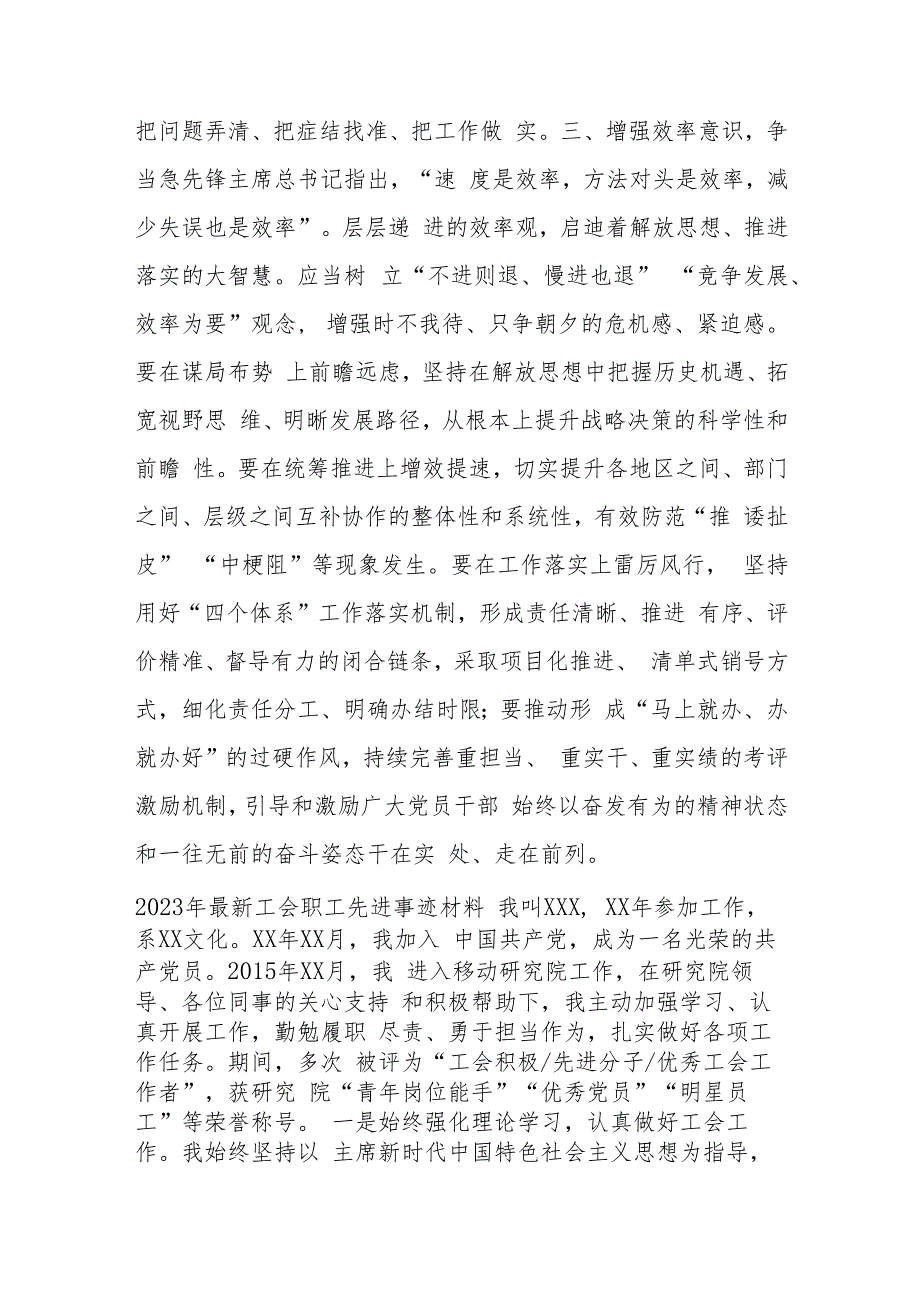 把问题弄清、把症结找准、把工作做 实。三、增强效率意识，争
当急先锋主席总书记指出，“速 度是效率，方法对头是效率，减
少失误也是效率”。层层递 进的效率观，启迪着解放思想、推进
落实的大智慧。应当树 立“不进则退、慢进也退” “竞争发展、
效率为要”观念， 增强时不我待、只争朝夕的危机感、紧迫感。
要在谋局布势 上前瞻远虑，坚持在解放思想中把握历史机遇、拓
宽视野思 维、明晰发展路径，从根本上提升战略决策的科学性和
前瞻 性。要在统筹推进上增效提速，切实提升各地区之间、部门
之间、层级之间互补协作的整体性和系统性，有效防范“推 诿扯
皮” “中梗阻”等现象发生。要在工作落实上雷厉风行， 坚持
用好“四个体系”工作落实机制，形成责任清晰、推进 有序、评
价精准、督导有力的闭合链条，采取项目化推进、 清单式销号方
式，细化责任分工、明确办结时限；要推动形 成“马上就办、办
就办好”的过硬作风，持续完善重担当、 重实干、重实绩的考评
激励机制，引导和激励广大党员干部 始终以奋发有为的精神状态
和一往无前的奋斗姿态干在实 处、走在前列。
2023年最新工会职工先进事迹材料 我叫XXX，XX年参加工作，
系XX文化。XX年XX月，我加入 中国共产党，成为一名光荣的共
产党员。2015年XX月，我 进入移动研究院工作，在研究院领
导、各位同事的关心支持 和积极帮助下，我主动加强学习、认
真开展工作，勤勉履职 尽责、勇于担当作为，扎实做好各项工
作任务。期间，多次 被评为“工会积极/先进分子/优秀工会工
作者”，获研究 院“青年岗位能手”“优秀党员”“明星员
工”等荣誉称号。 一是始终强化理论学习，认真做好工会工
作。我始终坚持以 主席新时代中国特色社会主义思想为指导，